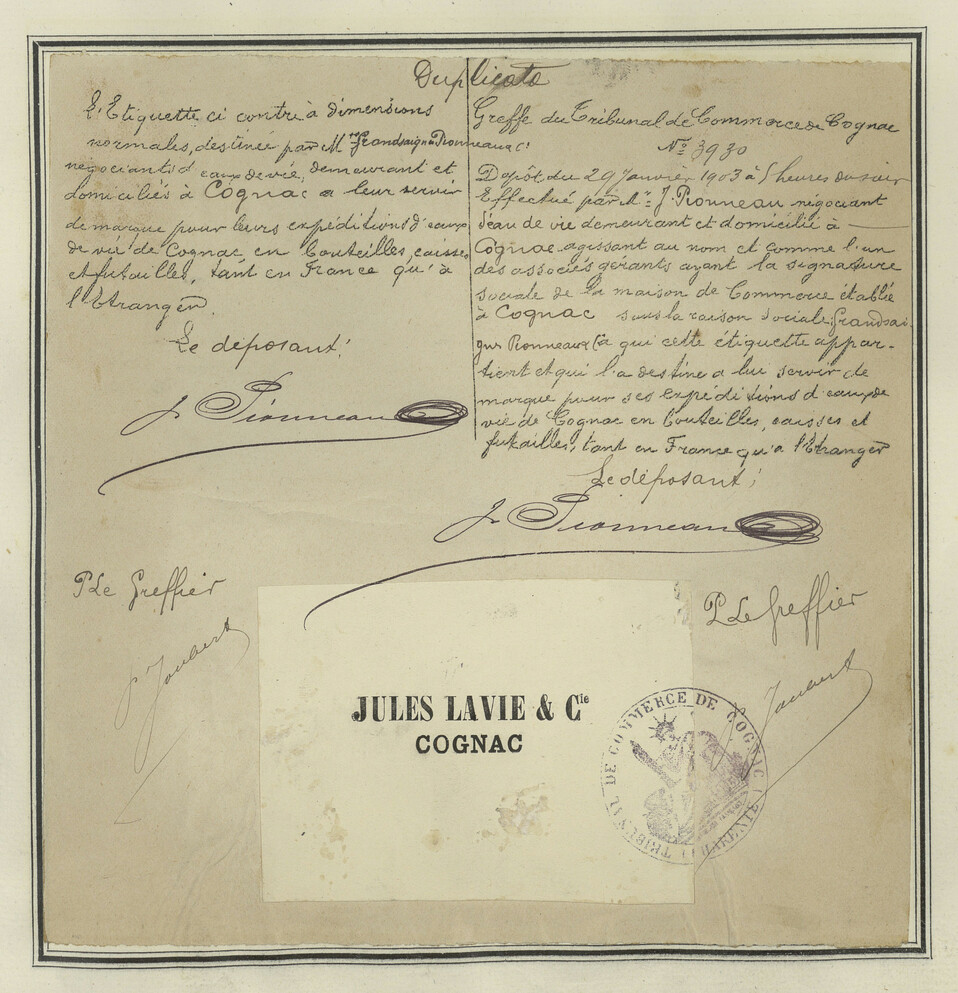 Duplicata
L'Etiquette ci contre à dimensions
normales, destinée par Mrs Grandsaigne Pionneaux Cie
négociants d'eaux de vie, demeurant et
domiciliés à Cognac a leur servir
de marque pour leurs expéditions d'eaux
de vie de Cognac en bouteilles, caisses
et futailles, tant en France qu'à
l'Etranger
Le déposant!
J. Pionneau
Greffe du Tribunal de Commerce de Cognac
No 3930
Dépôt du 29 Janvier 1903 à 5 heures du soir
Effectué par Mr J. Pionneau négociant
d'eau de vie demeurant et domicilié à
Cognac agissant au nom et comme l'un
des associés gérants ayant la signature
sociale de la maison de Commerce établie
à Cognac sous la raison sociale: Grandsai-
gne Pionneaux Cie à qui cette étiquette appar-
tient et qui l'a destine a lui servir de
marque pour ses expéditions d'eaux de
vie de Cognac en bouteilles, caisses et
futailles, tant en France qu'à l'Etranger
Le déposant!
J. Pionneau
P Le Greffier
Joubert
P. Le Greffier
Joubert
JULES LAVIE & Cie
COGNAC
TRIBUNAL DE COMMERCE DE COGNAC (CHARENTE)